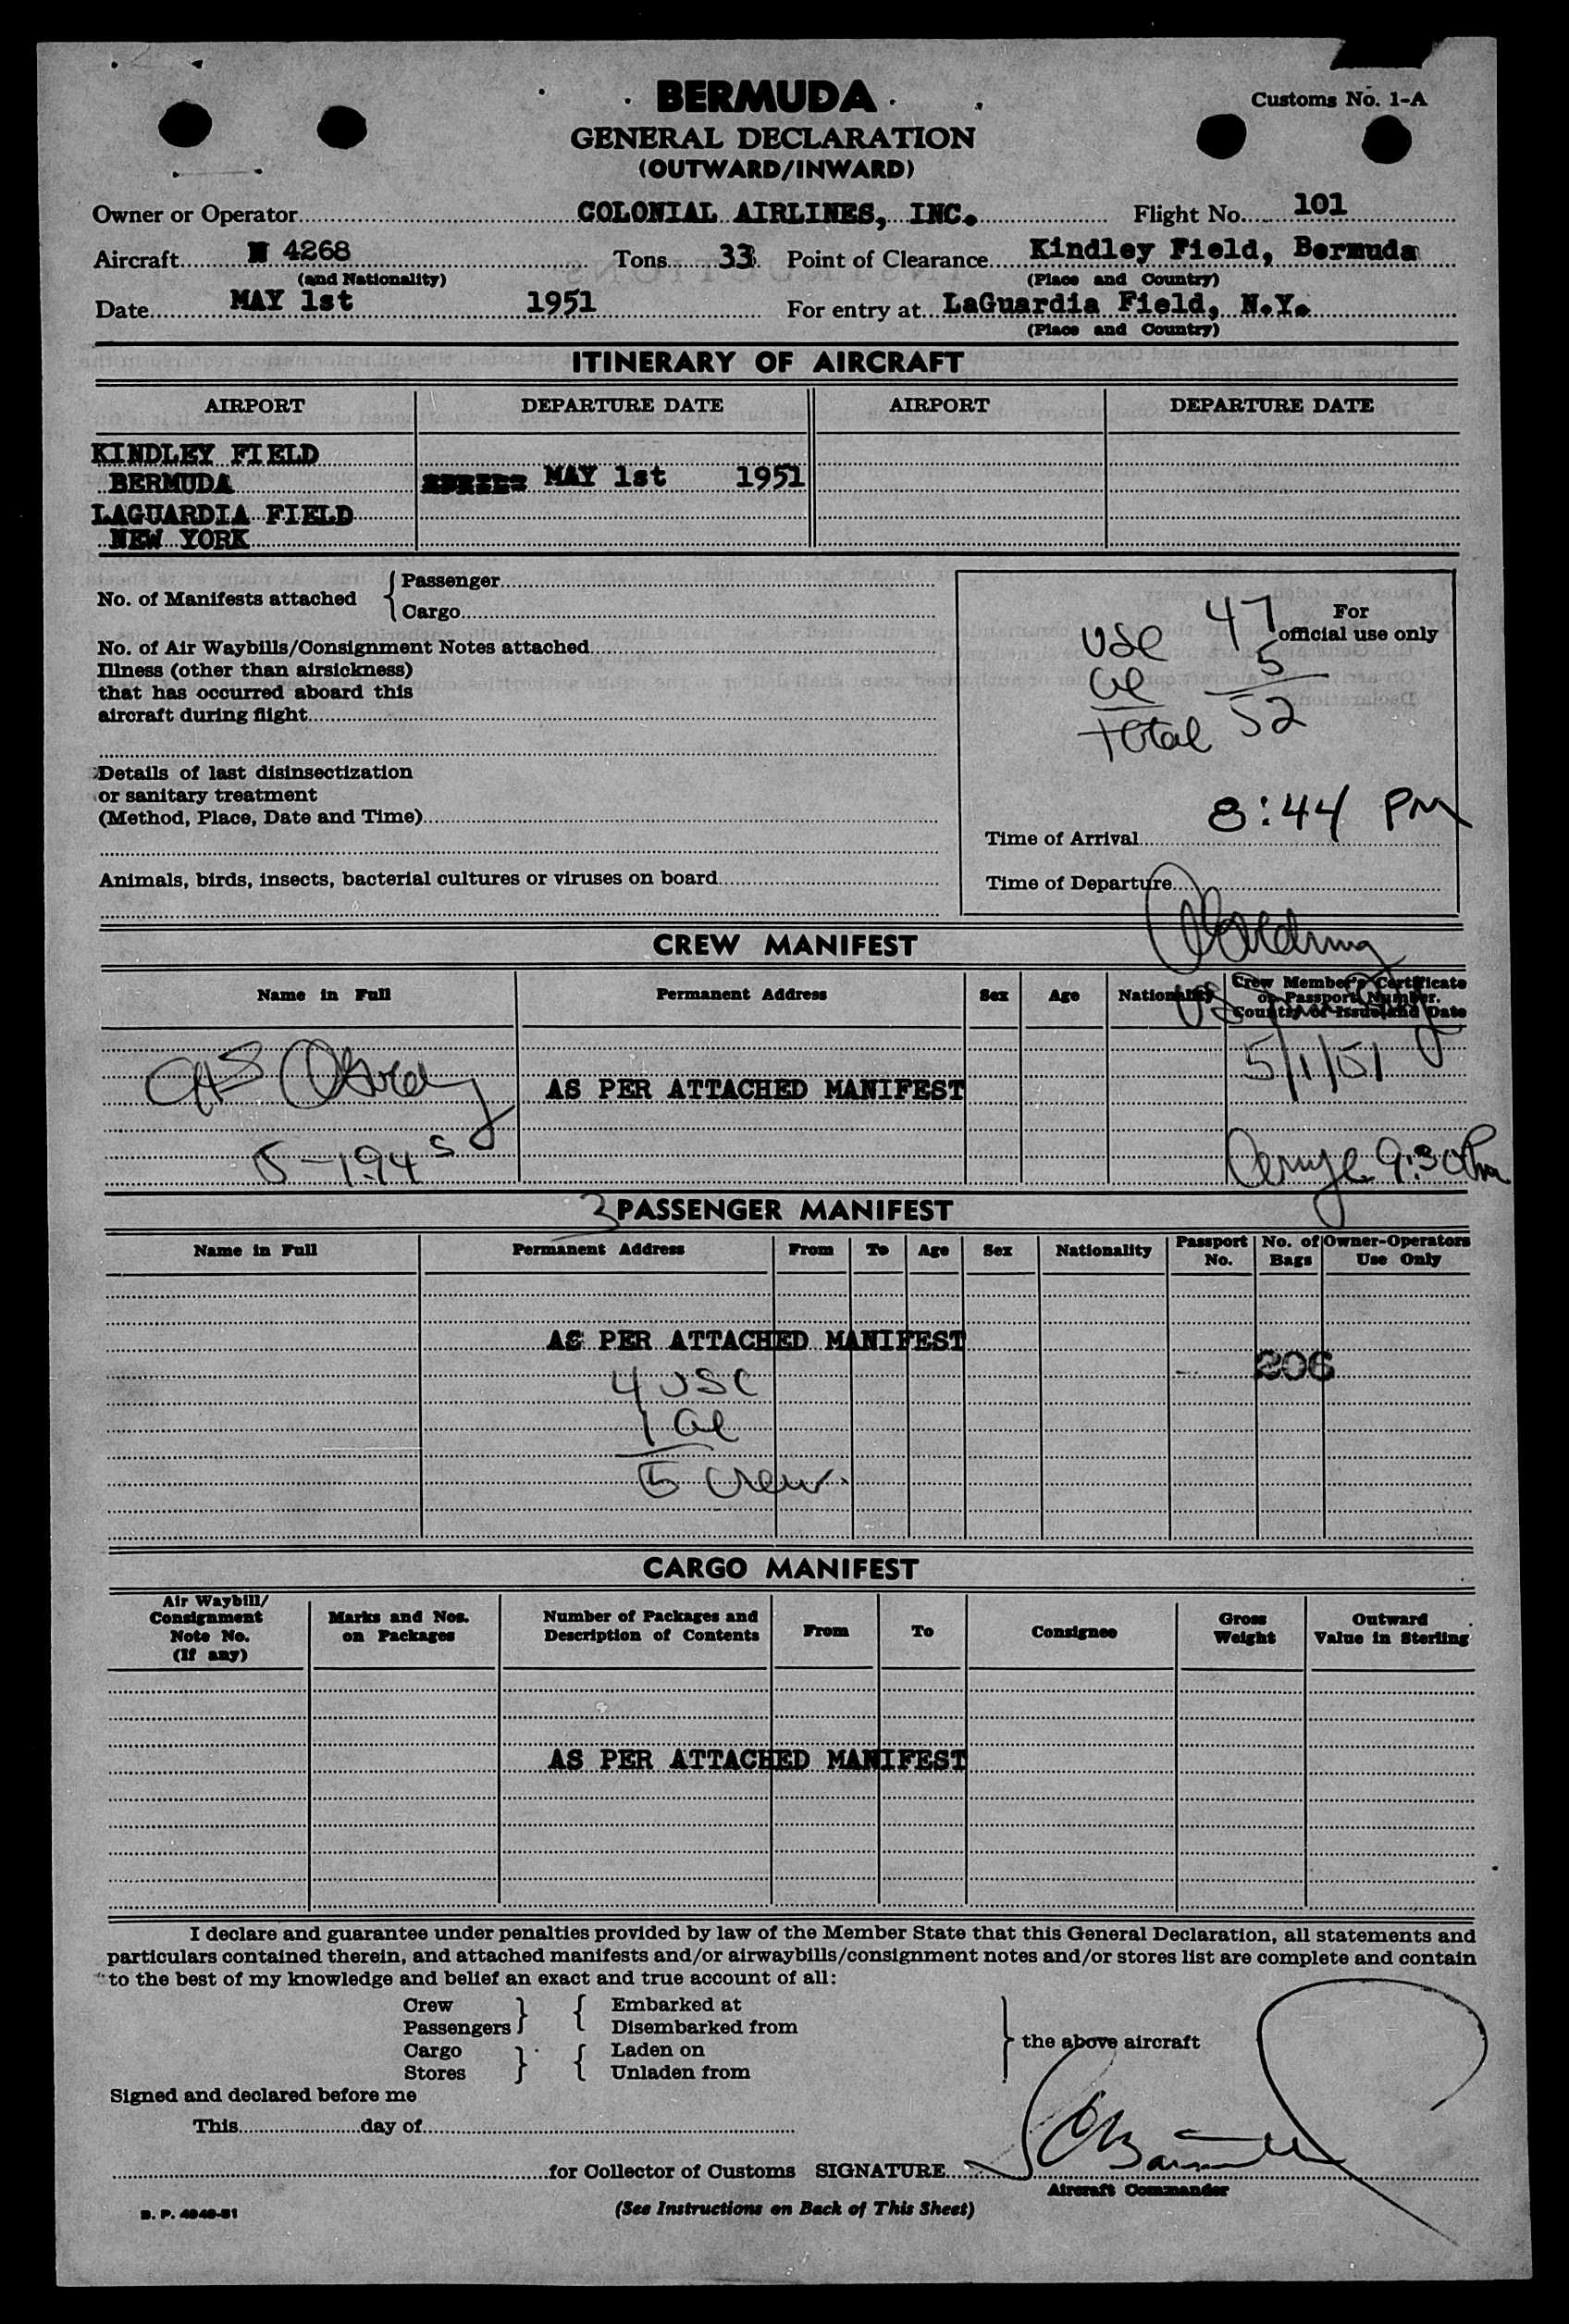 BERMUDA
Customs No. 1-A
GENERAL DECLARATION
(OUTWARD/INWARD)
Owner or Operator COLONIAL AIRLINES, INC. Flight No. 101
Aircraft N 4268 Tons 33 Point of Clearance Kindley Field, Bermuda
(and Nationality) (Place and Country)
Date MAY 1st 1951 For entry at LaGuardia Field, N.Y.
(Place and Country)
ITINERARY OF AIRCRAFT
AIRPORT DEPARTURE DATE AIRPORT DEPARTURE DATE
KINDLEY FIELD
BERMUDA MAY 1st 1951
LAGUARDIA FIELD
NEW YORK
No. of Manifests attached { Passenger
Cargo
For
official use only
USC 47
al 5
Total 52
No. of Air Waybills/Consignment Notes attached
Illness (other than airsickness)
that has occurred aboard this
aircraft during flight
Details of last disinsectization
or sanitary treatment
(Method, Place, Date and Time)
Time of Arrival 8:44 PM
Animals, birds, insects, bacterial cultures or viruses on board
Time of Departure
CREW MANIFEST
Name in Full Permanent Address Sex Age Nationality Crew Member's Certificate
or Passport Number.
Country of Issue and Date
5/1/51
AS PER ATTACHED MANIFEST
9:30 Pm
3 PASSENGER MANIFEST
Name in Full Permanent Address From To Age Sex Nationality Passport No. No. of Bags Owner-Operators Use Only
AS PER ATTACHED MANIFEST
206
4 USC
1 al
5 Crew
CARGO MANIFEST
Air Waybill/ Consignment Note No. (If any) Marks and Nos. on Packages Number of Packages and Description of Contents From To Consignee Gross Weight Outward Value in Sterling
AS PER ATTACHED MANIFEST
I declare and guarantee under penalties provided by law of the Member State that this General Declaration, all statements and
particulars contained therein, and attached manifests and/or airwaybills/consignment notes and/or stores list are complete and contain
to the best of my knowledge and belief an exact and true account of all:
Crew } { Embarked at
Passengers Disembarked from
Cargo } { Laden on } the above aircraft
Stores Unladen from
Signed and declared before me
This day of
for Collector of Customs SIGNATURE
Aircraft Commander
B. P. 4040-51
(See Instructions on Back of This Sheet)